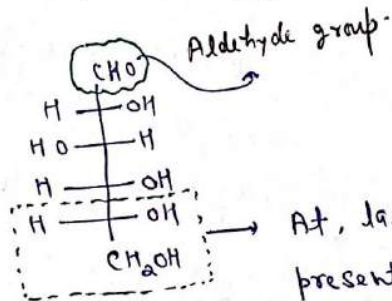 Aldehyde group.
CHO
H OH
H O H
H OH
H OH
CH2OH
→ At, la
present